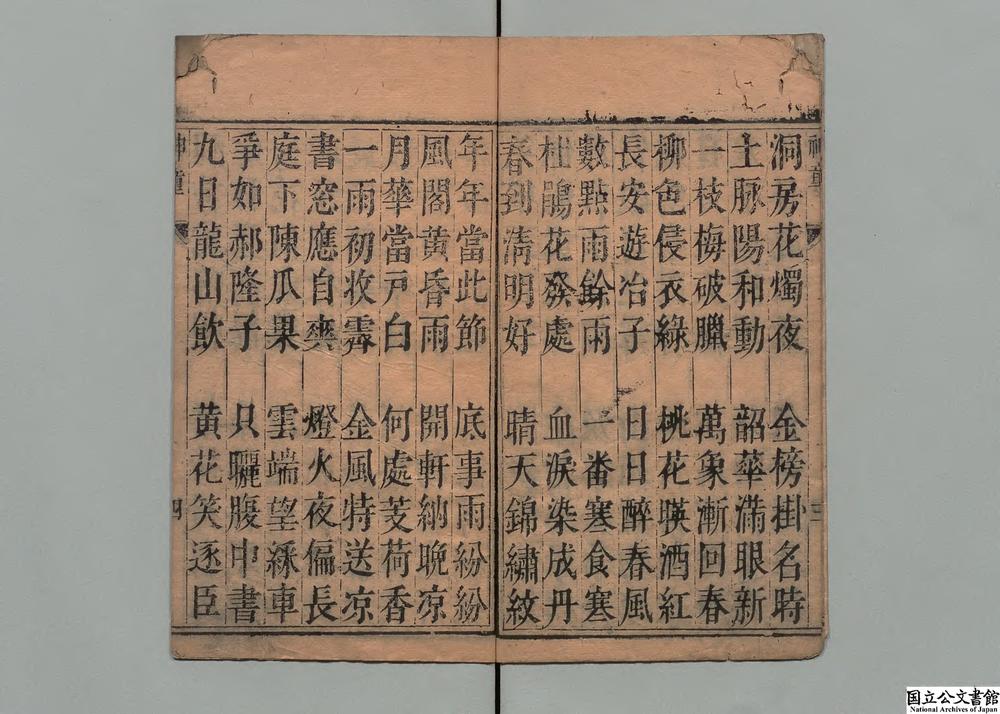 神童
三
洞房花燭夜 金榜掛名時
土脉陽和動 韶華滿眼新
一枝梅破臘 萬象漸回春
柳色侵衣綠 桃花暎酒紅
長安遊冶子 日日醉春風
數點雨餘雨 一番寒食寒
杜鵑花發處 血淚染成丹
春到清明好 晴天錦繡紋
年年當此節 底事雨紛紛
風閣黃昏雨 開軒納晚凉
月華當戸白 何處芰荷香
一雨初收霽 金風特送凉
書窓應自爽 燈火夜偏長
庭下陳瓜果 雲端望綵車
爭如郝隆子 只曬腹中書
九日龍山飲 黃花笑逐臣
神童
四
国立公文書館
National Archives of Japan